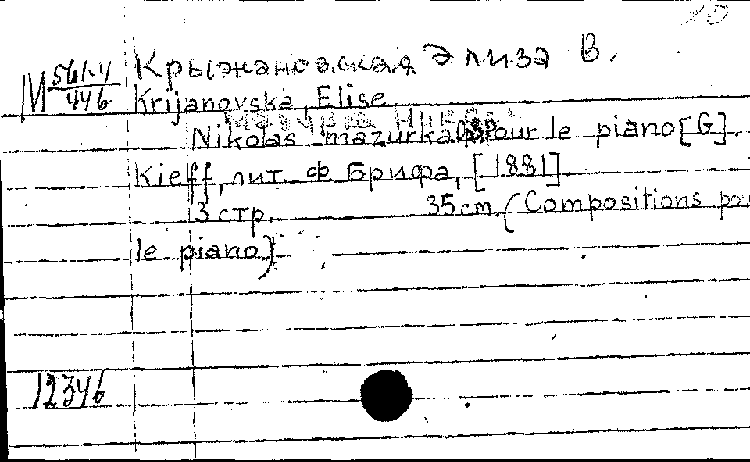 10
Крыжановская Элиза В.
М 561.4/446
Krijanovska, Elise.
Nikolas-mazurka pour le piano [G].
Kieff, лит. Ф Брифа, [1881]
3 стр. 35 cm. (Compositions pou
le piano)
12346